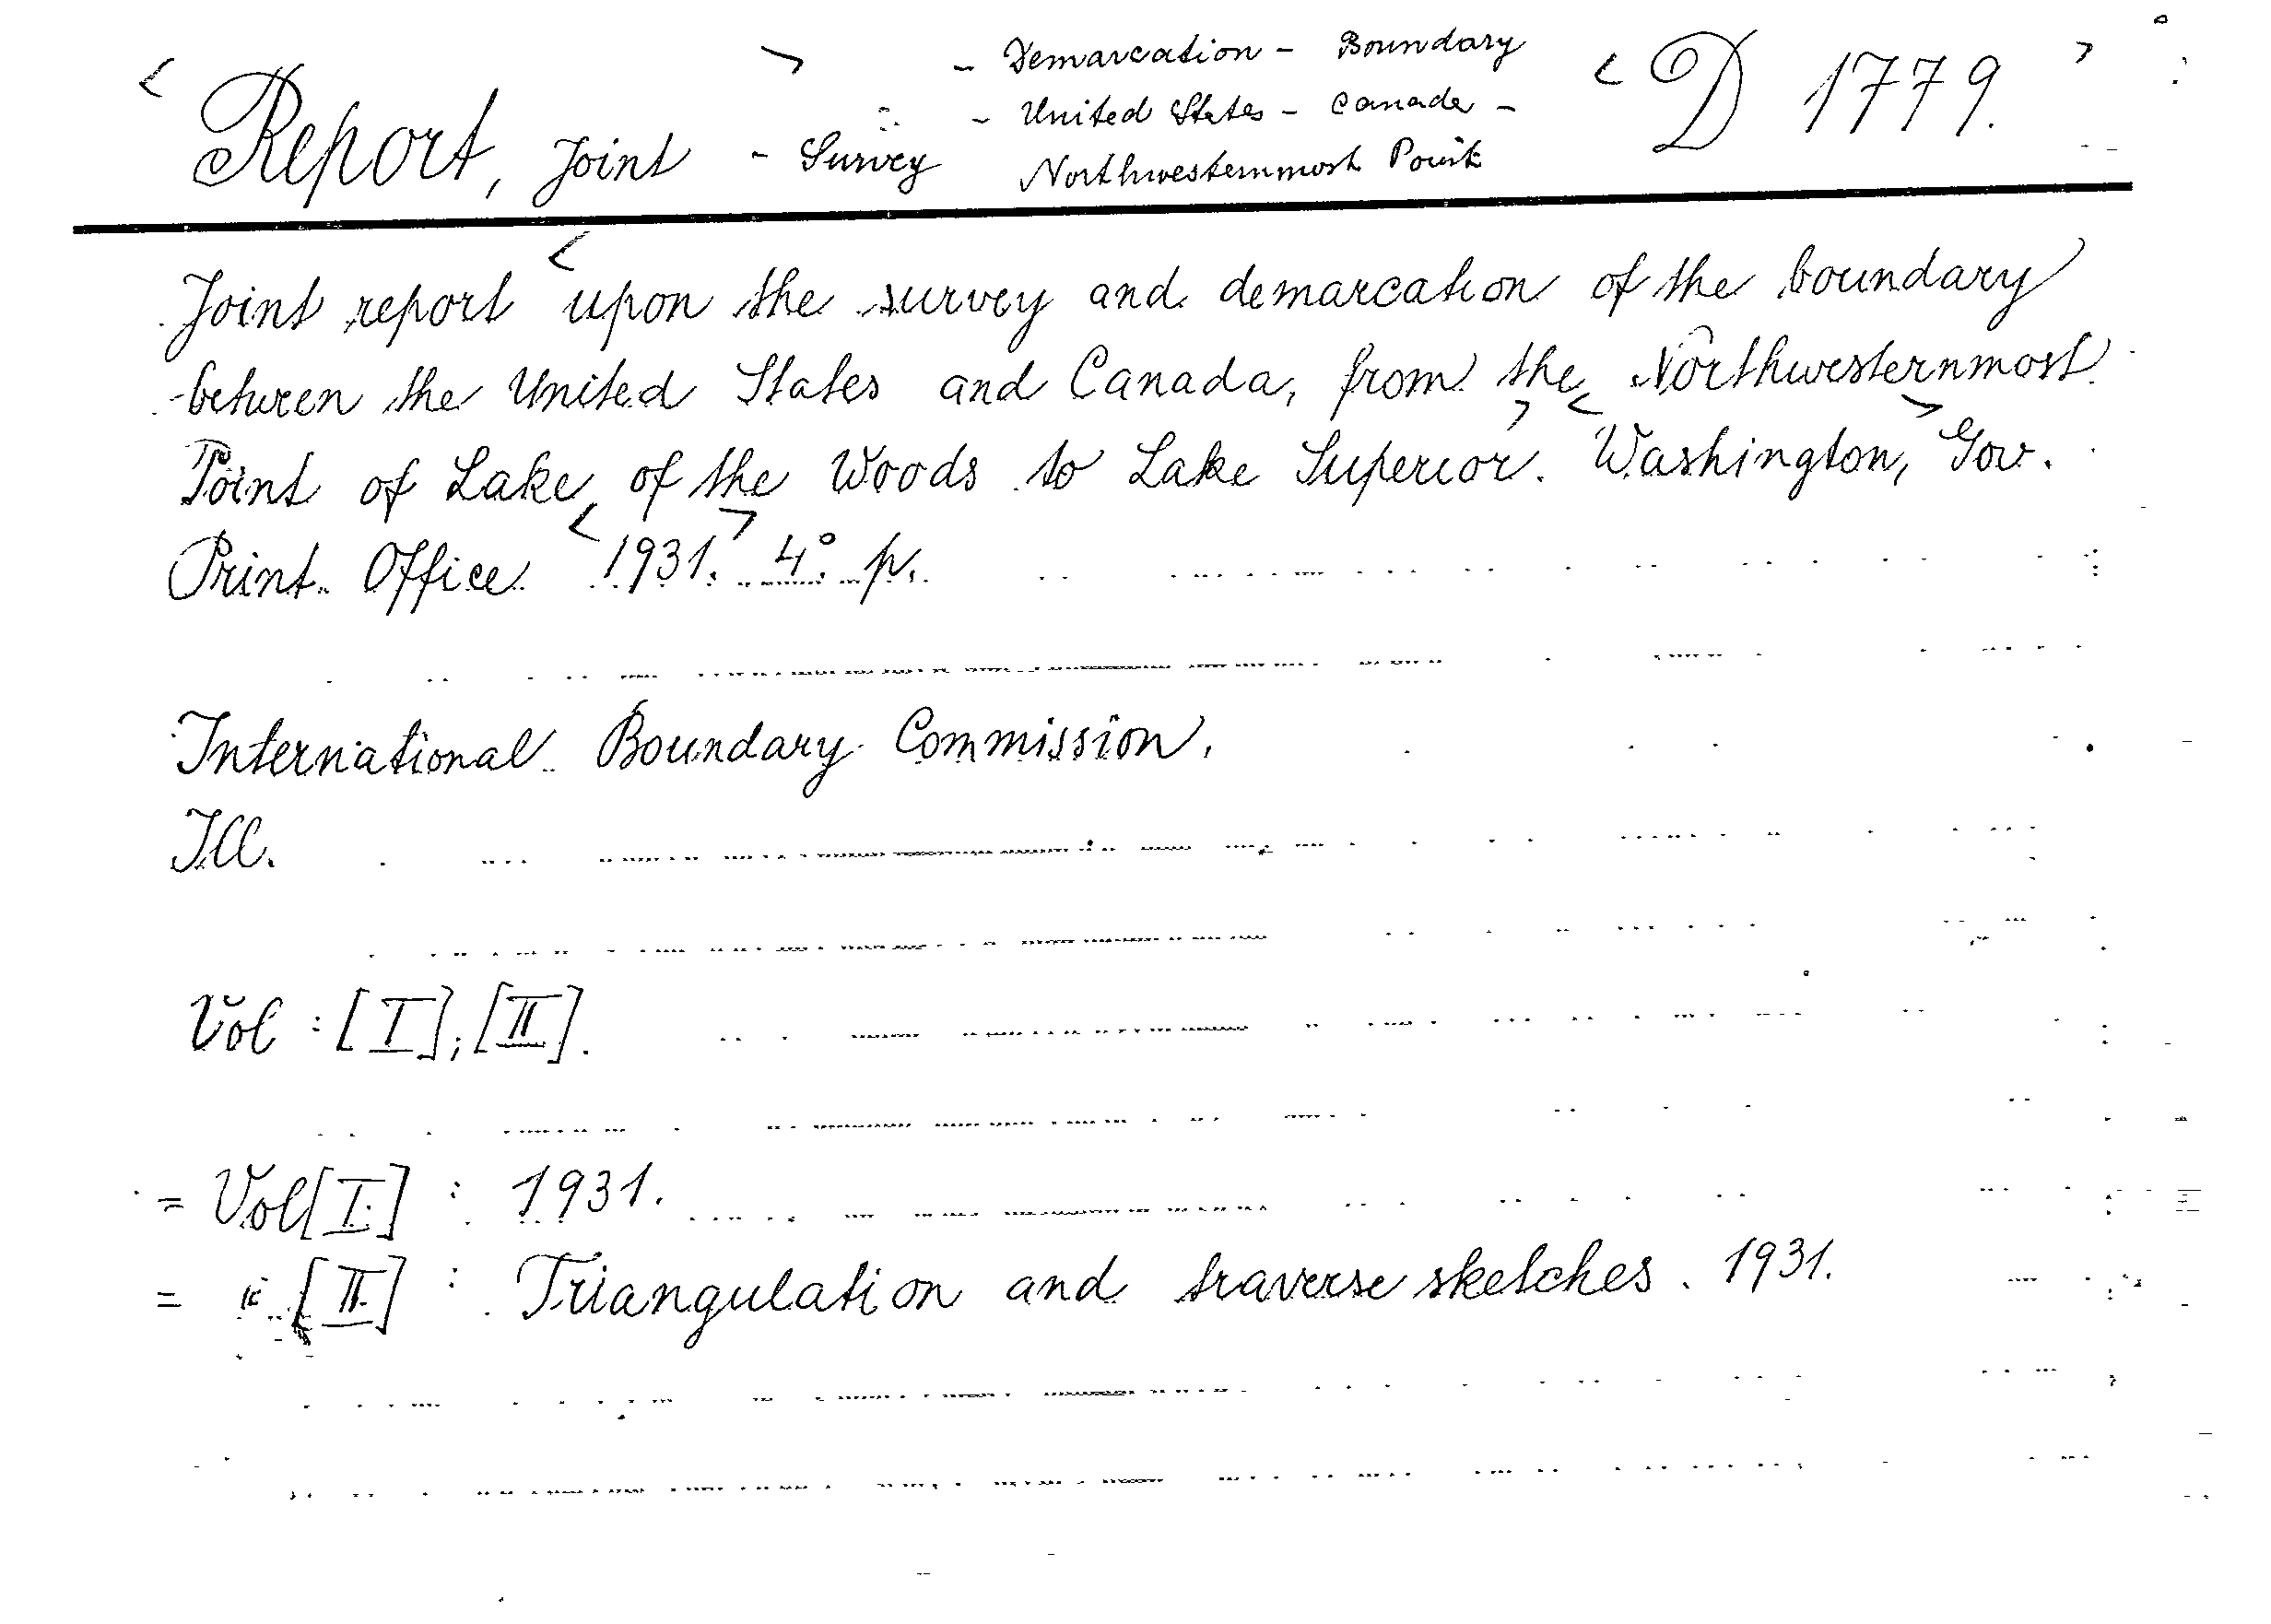 < Report, Joint > - Survey - Demarcation - Boundary - United States - Canada - Northwesternmost Point < D 1779. >
Joint report < upon the survey and demarcation of the boundary
between the United States and Canada, from the Northwesternmost
Point of Lake of the Woods to Lake Superior >. < Washington, > Gov.
Print. Office < 1931. > 4° p.
International Boundary Commission.
Ill.
Vol : [I]; [II].
= Vol [I] : 1931.
= " [II] : Triangulation and traverse sketches. 1931.